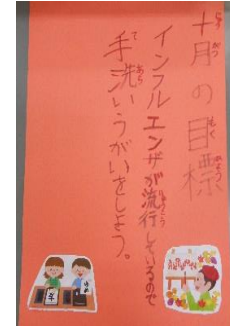 十月の目標
インフルエンザが流行しているので
手洗いうがいをしよう。